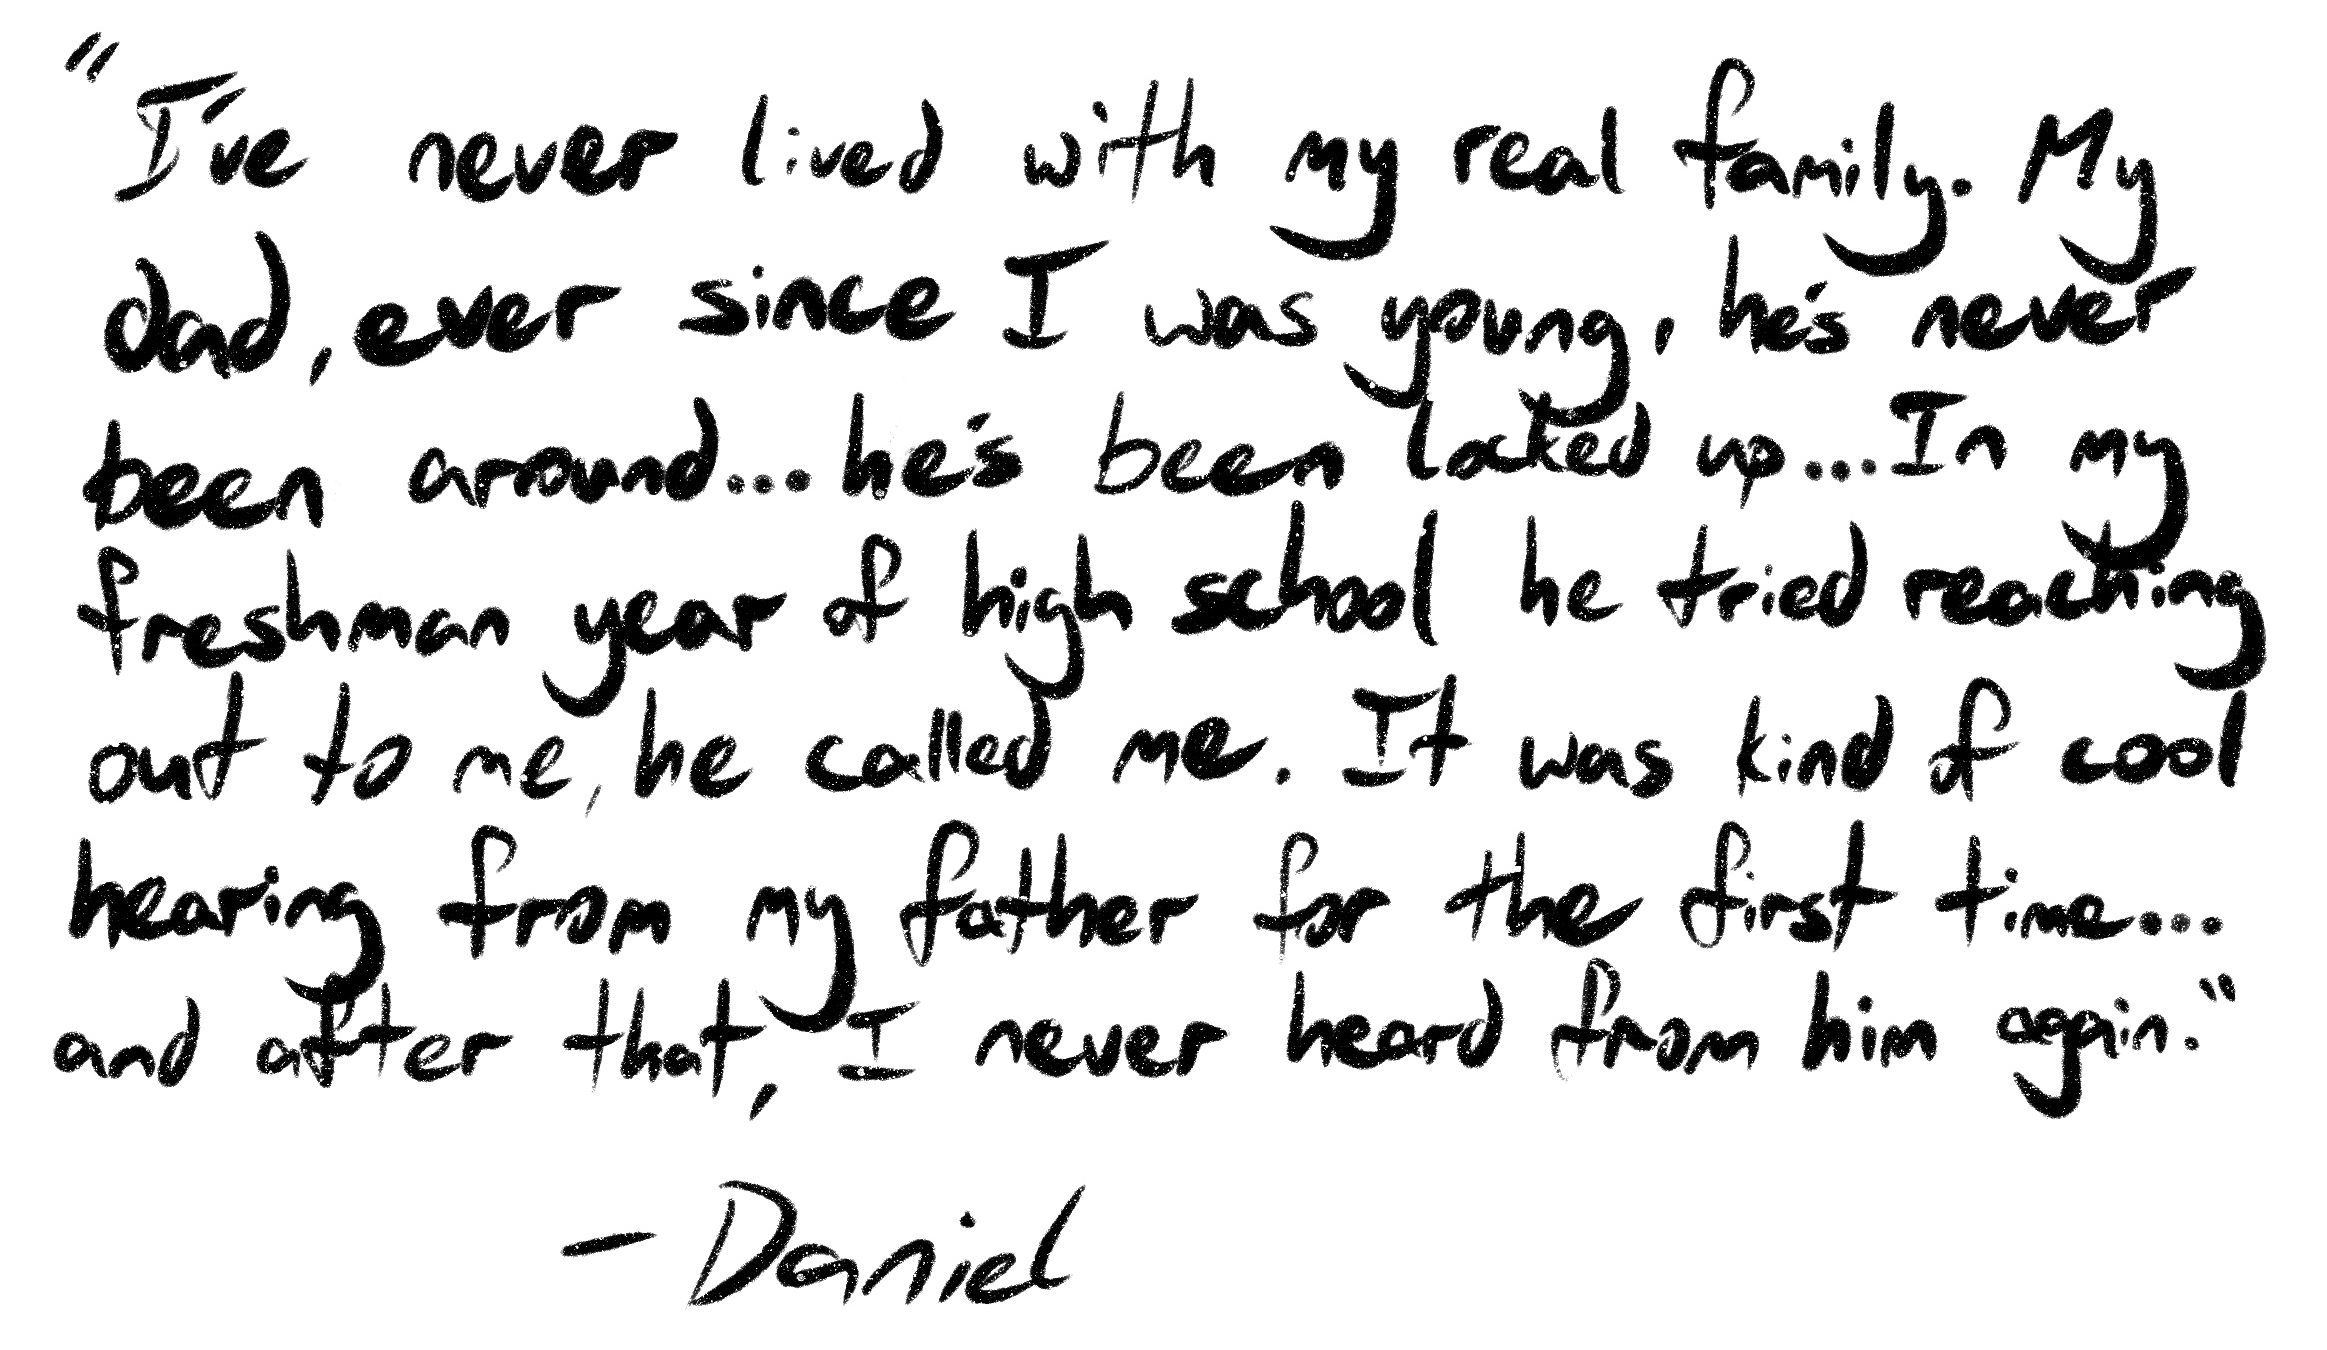 "I've never lived with my real family. My
dad, ever since I was young, he's never
been around...he's been locked up...In my
freshman year of high school he tried reaching
out to me, he called me. It was kind of cool
hearing from my father for the first time...
and after that, I never heard from him again."
- Daniel